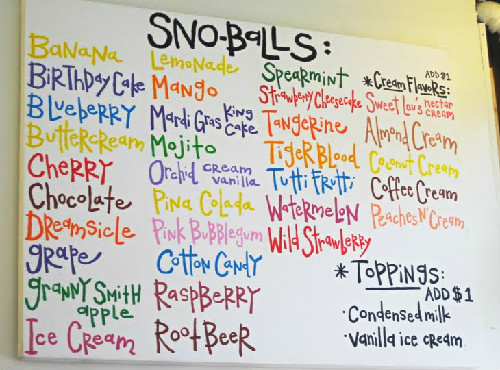 SNO-BALLS:
BaNaNa
BiRTHDay Cake
BLueBeRRY
BuTTeRCReam
CHeRRy
CHocoLaTe
DReamsicLe
gRape
gRaNNy SmiTH
appLe
Ice CReam
LemoNaDe
MaNgo
MaRDi GRas KiNg
Cake
MoJiTo
ORcHiD cReam
vaNiLLa
PiNa CoLaDa
PiNk BuBBLegum
CoTToN CaNDy
RaspBeRRy
RooT BeeR
SpeaRmiNT
STRawBeRRy CHeesecake
TaNgeRiNe
TigeR BLooD
TuTTi FRuTTi
WaTeRmeLoN
WiLD STRawBeRRy
ADD $1
*CReam FLavoRs:
SweeT Lou's NecTaR
cReam
ALmoND CReam
CocoNuT CReam
Coffee CReam
PeacHes N' CReam
* ToppiNgs:
ADD $1
·CoNDeNseDmiLk
·VaNiLLa ice cReam